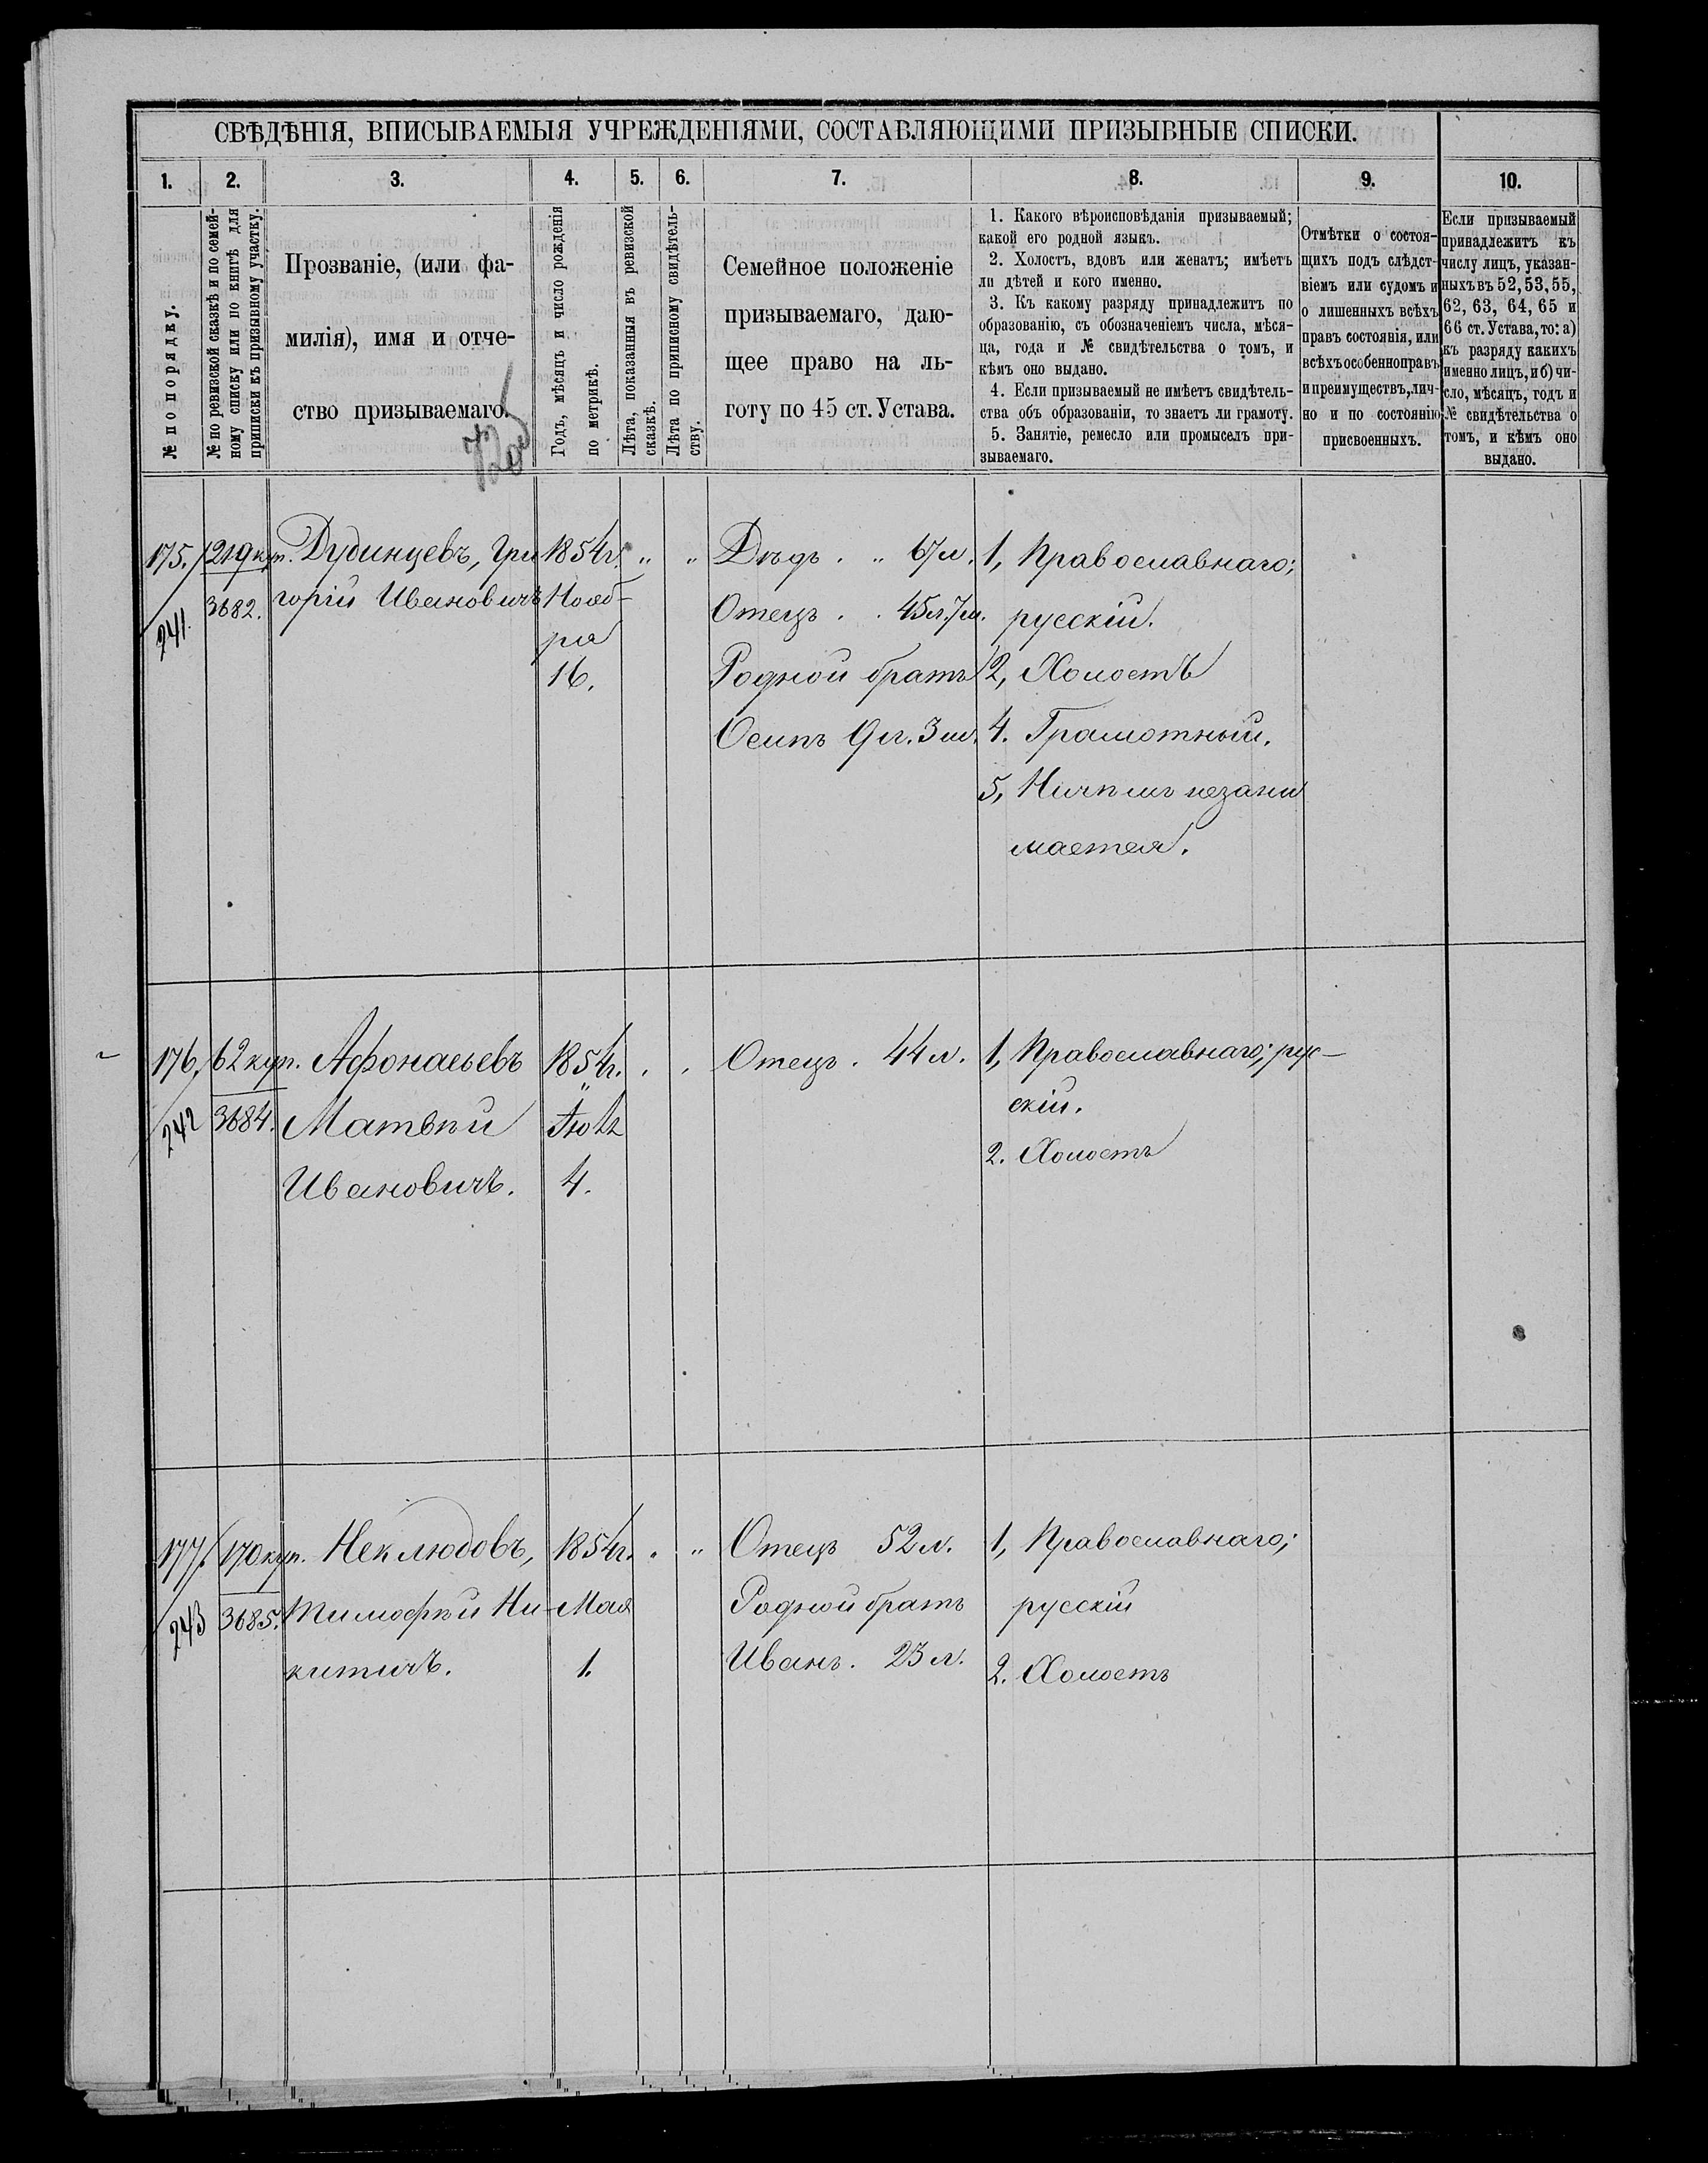 СВѢДѢНІЯ, ВПИСЫВАЕМЫЯ УЧРЕЖДЕНІЯМИ, СОСТАВЛЯЮЩИМИ ПРИЗЫВНЫЕ СПИСКИ.
1. 2. 3. 4. 5. 6. 7. 8. 9. 10.
№ по порядку.
№ по ревизской сказкѣ и по семей-
ному списку или по книгѣ для
приписки къ призывному участку.
Прозваніе, (или фа-
милія), имя и отче-
ство призываемаго.
Годъ, мѣсяцъ и число рожденія
по метрикѣ.
Лѣта, показанныя въ ревизской
сказкѣ.
Лѣта по приписному свидѣтель-
ству.
Семейное положеніе
призываемаго, даю-
щее право на ль-
готу по 45 ст. Устава.
1. Какого вѣроисповѣданія призываемый;
какой его родной языкъ.
2. Холостъ, вдовъ или женатъ; имѣетъ
ли дѣтей и кого именно.
3. Къ какому разряду принадлежитъ по
образованію, съ обозначеніемъ числа, мѣся-
ца, года и № свидѣтельства о томъ, и
кѣмъ оно выдано.
4. Если призываемый не имѣетъ свидѣтель-
ства объ образованіи, то знаетъ ли грамоту.
5. Занятіе, ремесло или промыселъ при-
зываемаго.
Отмѣтки о состоя-
щихъ подъ слѣдст-
віемъ или судомъ и
о лишенныхъ всѣхъ
правъ состоянія, или
всѣхъ особенно правъ
и преимуществъ, лич-
но и по состоянію
присвоенныхъ.
Если призываемый
принадлежитъ къ
числу лицъ, указан-
ныхъ въ 52, 53, 55,
62, 63, 64, 65 и
66 ст. Устава, то: а)
къ разряду какихъ
именно лицъ, и б) чи-
сло, мѣсяцъ, годъ и
№ свидѣтельства о
томъ, и кѣмъ оно
выдано.
175.
241.
219 куп.
3682.
Дудинцевъ, Гри
горій Ивановичъ
1854 г.
Нояб-
ря
16.
" "
Дѣдъ . " 67 л.
Отецъ . . 45 л. 7 м.
Родной братъ
Осипъ 9 л. 3 м.
1, Православнаго;
русскій.
2, Холостъ
4. Грамотный.
5, Ничѣмъ незани
мается.
176.
242
62 куп.
3684.
Афонасьевъ
Матвѣй
Ивановичъ.
1854 г.
4.
Отецъ . 44 л.
1, Православнаго; рус-
скій.
2. Холостъ
177.
243
170 куп.
3685.
Неклюдовъ,
Тимофѣй Ни-
китичъ.
1854 г.
Мая
1.
" "
Отецъ 52 л.
Родной братъ
Иванъ. 23 л.
1, Православнаго;
русскій
2. Холостъ